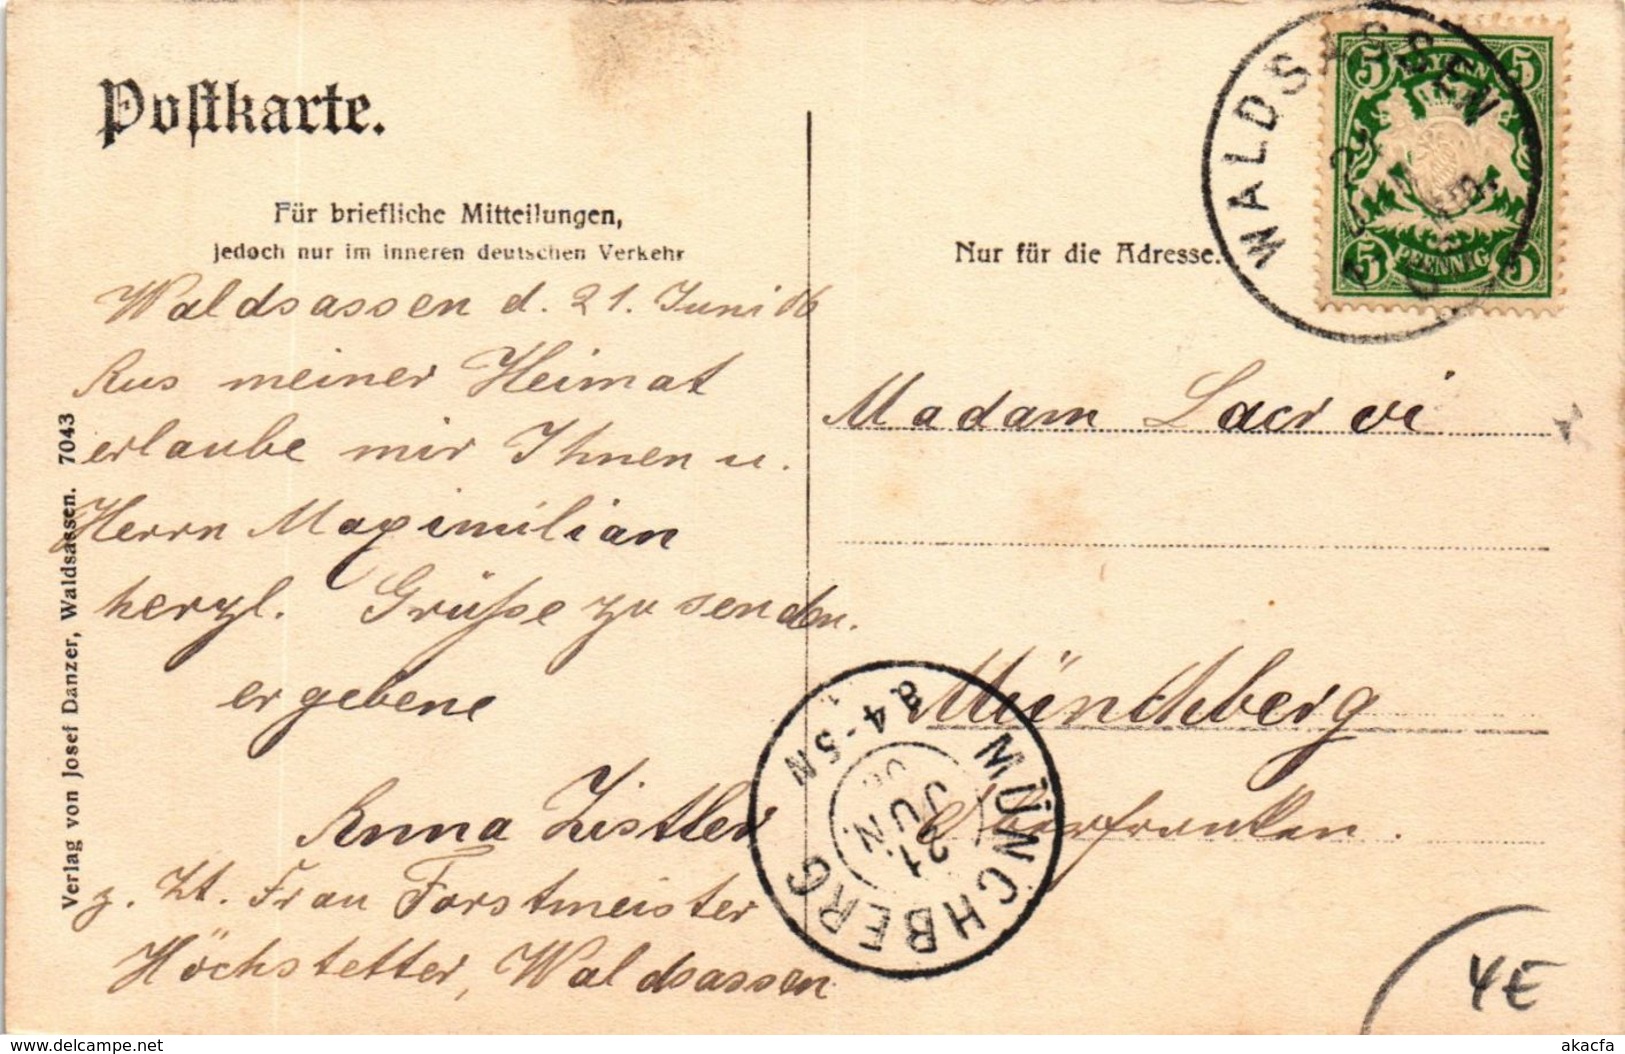 Postkarte.
Für briefliche Mitteilungen,
jedoch nur im inneren deutschen Verkehr
Nur für die Adresse.
WALDSASSEN
21
JUN
5 BAYERN 5
5 PFENNIG 5
Waldsassen d. 21. Juni 06
Aus meiner Heimat
erlaube mir Ihnen u.
Herrn Maximilian
herzl. Grüsse zu senden.
ergebene
Anna Zistler
z. Zt. Frau Forstmeister
Höchstetter, Waldsassen
Madam
Münchberg
Oberfranken.
MÜNCHBERG
21
JUN
06
4-5N
Verlag von Josef Danzer, Waldsassen. 7043
4E
http://www.delcampe.net
akacfa